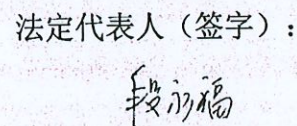 法定代表人（签字）：
段彦福